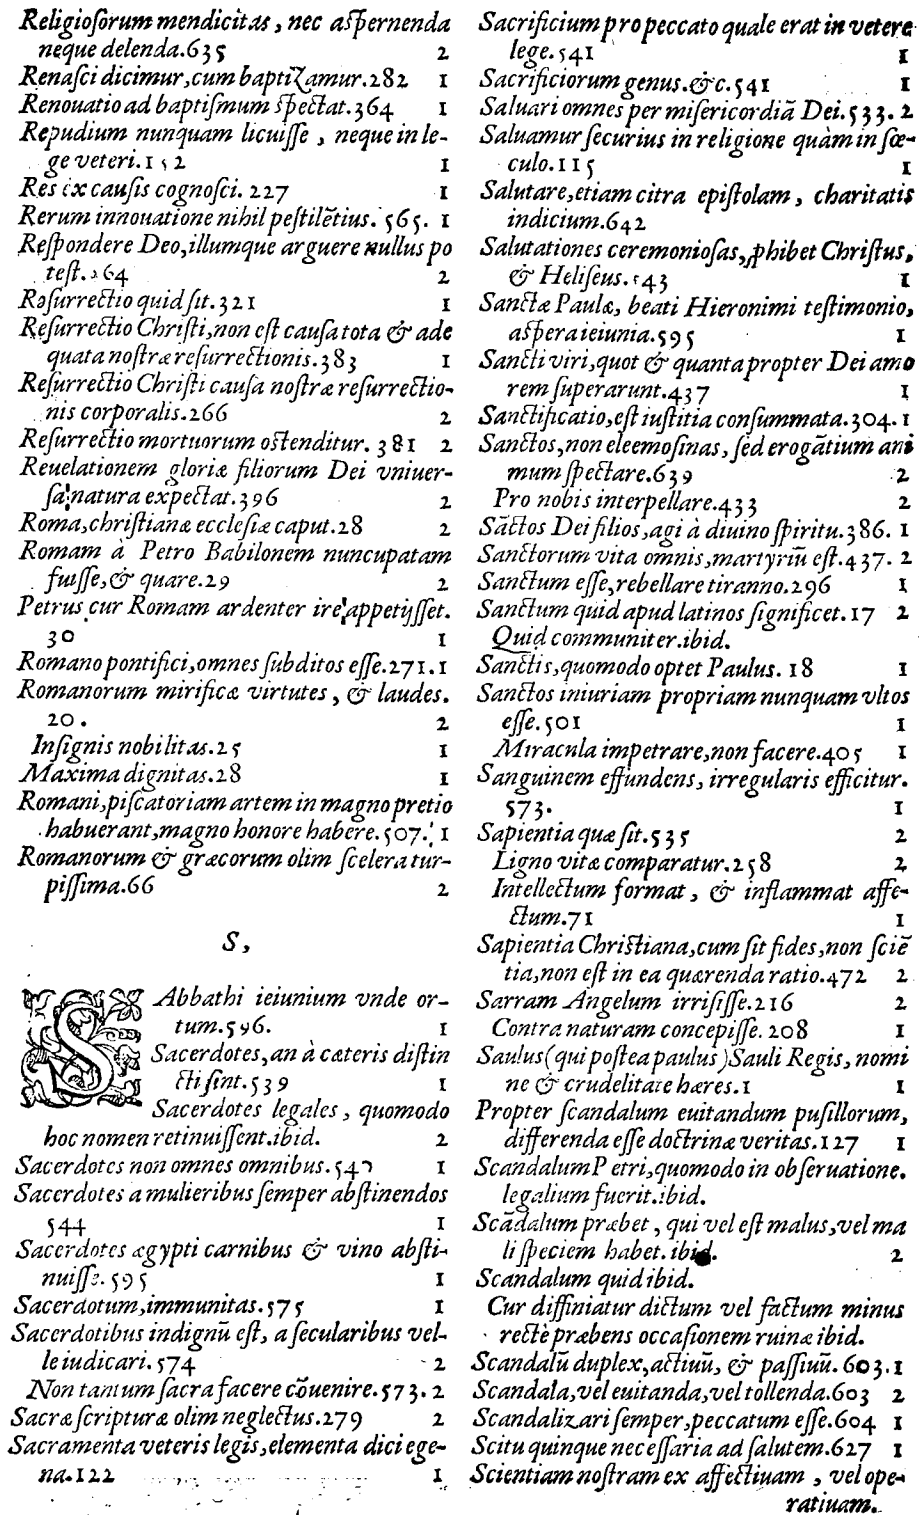 Religioſorum mendicitas, nec aſpernenda
neque delenda.635 2
Renaſci dicimur,cum baptizamur.282 1
Renouatio ad baptiſmum ſpectat.364 1
Repudium nunquam licuiſſe , neque in le-
ge veteri.152 1
Res ex cauſis cognoſci. 227 1
Rerum innouatione nihil peſtilẽtius. 565. 1
Reſpondere Deo,illumque arguere nullus po
teſt. 264 2
Reſurrectio quid ſit.321 1
Reſurrectio Chriſti,non eſt cauſa tota & ade
quata noſtræ reſurrectionis.383 1
Reſurrectio Chriſti cauſa noſtræ reſurrectio-
nis corporalis.266 2
Reſurrectio mortuorum oſtenditur. 381 2
Reuelationem gloriæ filiorum Dei vniuer-
ſa natura expectat.396 2
Roma,chriſtianæ eccleſiæ caput.28 2
Romam à Petro Babilonem nuncupatam
fuiſſe,& quare.29 2
Petrus cur Romam ardenter ire appetijſſet.
30 1
Romano pontifici,omnes ſubditos eſſe.271.1
Romanorum mirificæ virtutes , & laudes.
20. 2
Inſignis nobilitas.25 1
Maxima dignitas.28 1
Romani,piſcatoriam artem in magno pretio
habuerant,magno honore habere.507. 1
Romanorum & græcorum olim ſcelera tur-
piſſima.66 2
S,
SAbbathi ieiunium vnde or-
tum.596. 1
Sacerdotes,an à cæteris diſtin
cti ſint.539 1
Sacerdotes legales , quomodo
hoc nomen retinuiſſent.ibid. 2
Sacerdotes non omnes omnibus. 1
Sacerdotes a mulieribus ſemper abſtinendos
544 1
Sacerdotes ægypti carnibus & vino abſti-
nuiſſe.595 1
Sacerdotum,immunitas.575 1
Sacerdotibus indignũ eſt, a ſecularibus vel-
le iudicari.574 2
Non tantum ſacra facere cõuenire.573.2
Sacræ ſcripturæ olim neglectus.279 2
Sacramenta veteris legis,elementa dici ege-
na.122 1
Sacrificium pro peccato quale erat in vetere
lege.541 1
Sacrificiorum genus.&c.541 1
Saluari omnes per miſericordiã Dei.533.2
Saluamur ſecurius in religione quàm in ſœ-
culo.115 1
Salutare,etiam citra epiſtolam , charitatis
indicium.642 1
Salutationes ceremonioſas,ꝓhibet Chriſtus,
& Heliſeus. 543 1
Sanctæ Paulæ, beati Hieronimi teſtimonio,
aſpera ieiunia.595 1
Sancti viri,quot & quanta propter Dei amo
rem ſuperarunt.437 1
Sanctificatio,eſt iuſtitia conſummata.304.1
Sanctos,non eleemoſinas, ſed erogãtium ani
mum ſpectare.639 2
Pro nobis interpellare.433 2
Sãctos Dei filios,agi à diuino ſpiritu.386. 1
Sanctorum vita omnis,martyriũ eſt.437. 2
Sanctum eſſe,rebellare tiranno.296 1
Sanctum quid apud latinos ſignificet.17 2
Quid communiter.ibid.
Sanctis,quomodo optet Paulus. 18 1
Sanctos iniuriam propriam nunquam vltos
eſſe.501 1
Miracula impetrare,non facere.405 1
Sanguinem effundens, irregularis efficitur.
573. 1
Sapientia quæ ſit.535 2
Ligno vitæ comparatur.258 2
Intellectum format , & inflammat affe-
ctum.71 1
Sapientia Chriſtiana,cum ſit fides,non ſciẽ
tia,non eſt in ea quærenda ratio.472 2
Sarram Angelum irriſiſſe.216 2
Contra naturam concepiſſe. 208 1
Saulus(qui poſtea paulus)Sauli Regis, nomi
ne & crudelitate hæres.1 1
Propter ſcandalum euitandum puſillorum,
differenda eſſe doctrinæ veritas.127 1
Scandalum Petri,quomodo in obſeruatione.
legalium fuerit.ibid.
Scãdalum præbet , qui vel eſt malus,vel ma
li ſpeciem habet. ibid. 2
Scandalum quid ibid.
Cur diffiniatur dictum vel factum minus
rectè præbens occaſionem ruinæ ibid.
Scandalũ duplex,actiuũ, & paſſiuũ. 603.1
Scandala,vel euitanda,vel tollenda.603 2
Scandalizari ſemper,peccatum eſſe.604 1
Scitu quinque neceſſaria ad ſalutem.627 1
Scientiam noſtram ex affectiuam , vel ope-
ratiuam.